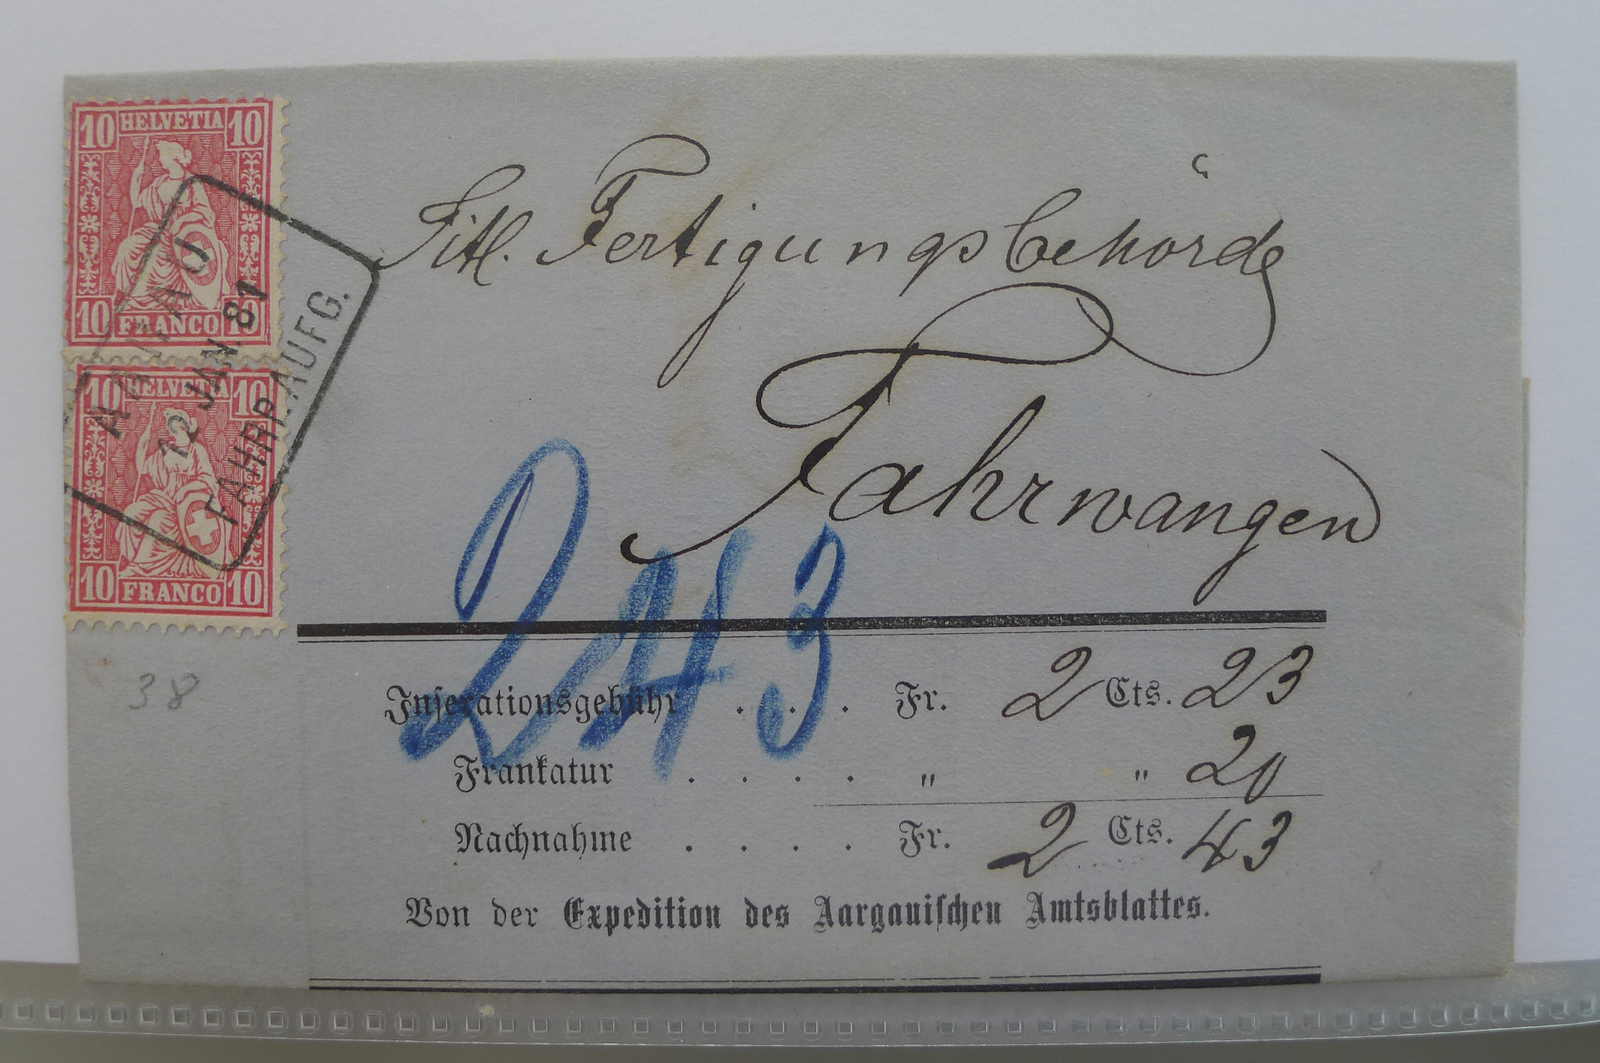 10 HELVETIA 10
10 FRANCO 10
10 HELVETIA 10
10 FRANCO 10
AARAU
12 JAN. 81
FAHRP. AUFG.
Titl. Fertigungsbehörde
Fahrwangen
243
38
Inserationsgebühr . . . Fr. 2 Cts. 23
Frankatur . . . . " " 20
Nachnahme . . . . Fr. 2 Cts. 43
Von der Expedition des Aargauischen Amtsblattes.